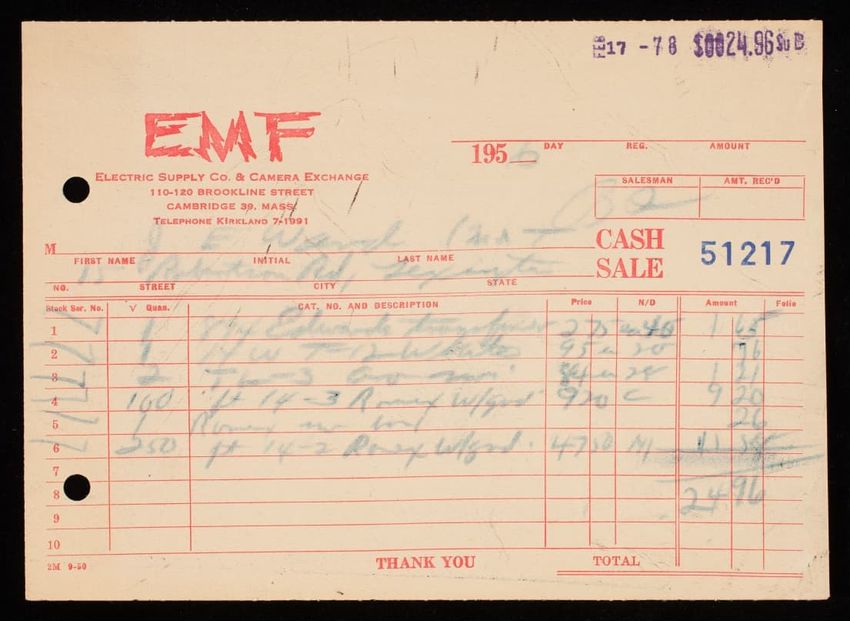 FEB 17 -78 $0024.96 SU B
EMF
ELECTRIC SUPPLY CO. & CAMERA EXCHANGE
110-120 BROOKLINE STREET
CAMBRIDGE 39, MASS.
TELEPHONE KIRKLAND 7-1991
1956 DAY REG. AMOUNT
SALESMAN AMT. REC'D
M J E
FIRST NAME INITIAL LAST NAME
CASH SALE 51217
15 Robertson Rd, Lexington
NO. STREET CITY STATE
Stock Ser. No. √ Quan. CAT. NO. AND DESCRIPTION Price N/D Amount Folio
1 1 Edwards 2 75 40 1 65
2 1 95 20 76
3 2 1 21
4 100 ft 14-3 Romex w/grd 9 20 C 9 20
5 1 Romex 26
6 250 ft 14-2 Romex w/grd. 47 50 M
7
8 24 96
9
10
2M 9-50 THANK YOU TOTAL